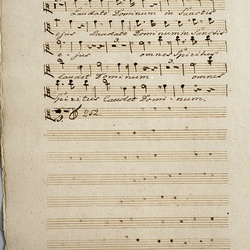 Laudate Dominum in Sanctis
ejus Laudate Dominum in Sanctis
ejus omnes Spiritus
laudet Dominum omnes
Spiritus Laudet Domi-num,
252.